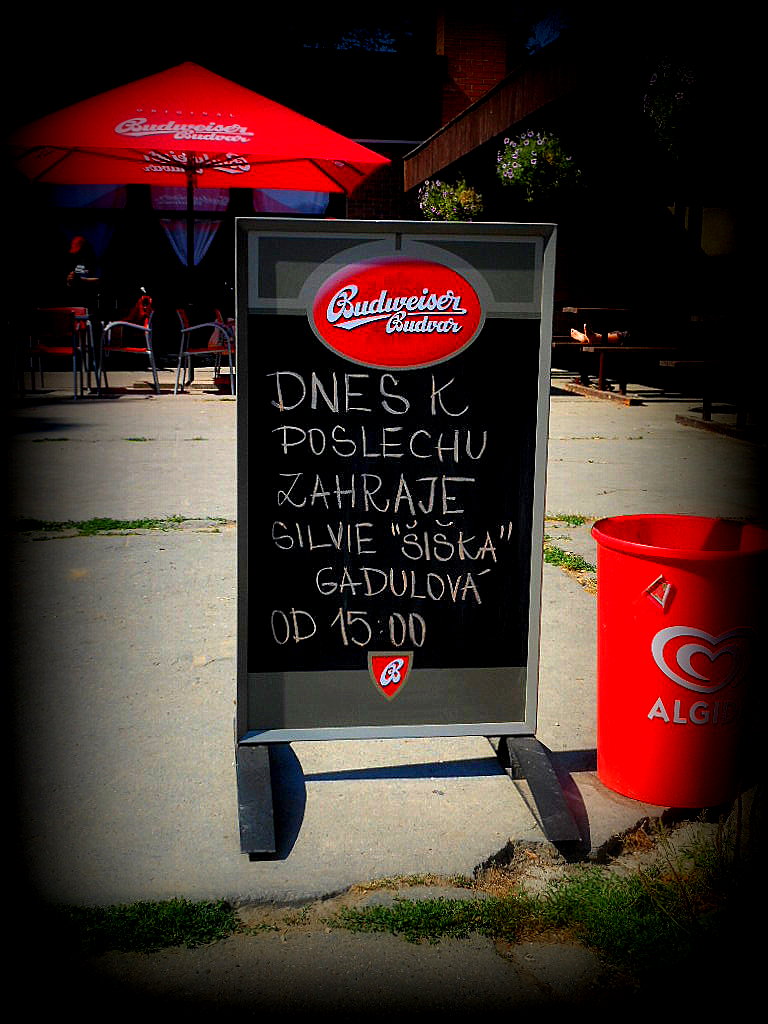 ORIGINAL
Budweiser
Budvar
Budweiser
Budvar
Budweiser
Budvar
DNES K
POSLECHU
ZAHRAJE
SILVIE "ŠIŠKA"
GADULOVÁ
OD 15:00
B